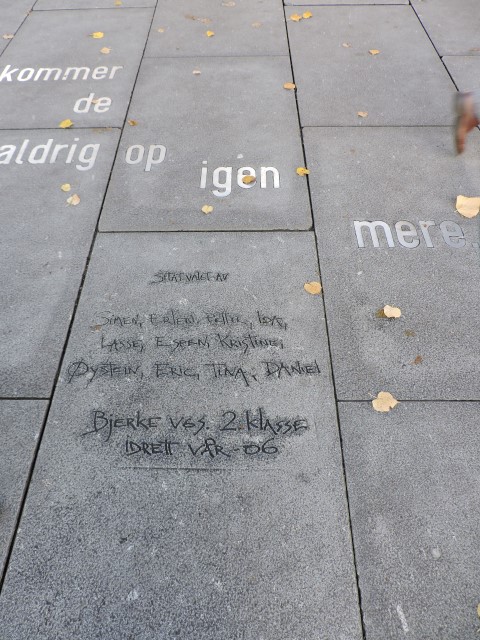 kommer
de
aldrig op igen
mere.
SITAT VALGT AV
SIMEN, ERLEND,
LASSE, ESPEN, KRISTINE,
ØYSTEIN, ERIC, TINA, DANIEL
BJERKE VGS. 2. KLASSE
IDRETT VÅR-06